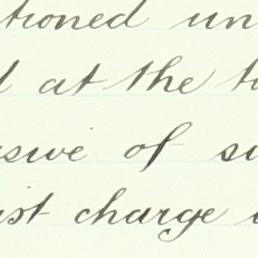 tioned un
at the t
usive of su
ist charge